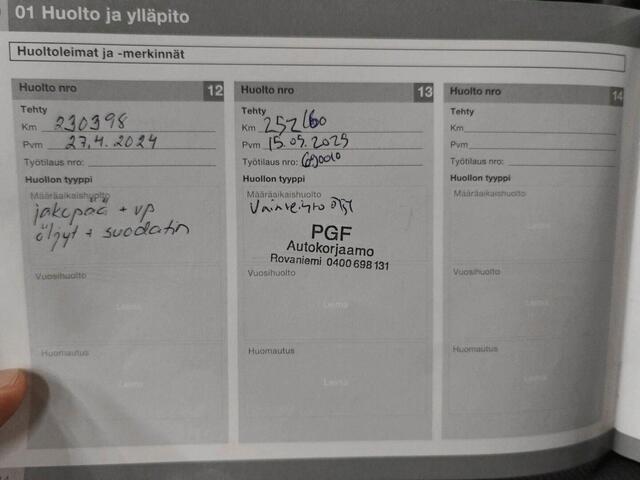 01 Huolto ja ylläpito
Huoltoleimat ja -merkinnät
Huolto nro 12
Tehty
Km 230398
Pvm 27.4.2024
Työtilaus nro:
Huollon tyyppi
Määräaikaishuolto
jakopää + vp
öljyt + suodatin
Vuosihuolto
Leima
Huomautus
Leima
Huolto nro 13
Tehty
Km 252160
Pvm 15.05.2025
Työtilaus nro:
Huollon tyyppi
Määräaikaishuolto
PGF
Autokorjaamo
Rovaniemi 0400 698 131
Vuosihuolto
Leima
Huomautus
Leima
Huolto nro 14
Tehty
Km
Pvm
Työtilaus nro:
Huollon tyyppi
Määräaikaishuolto
Vuosihuolto
Leima
Huomautus
Leima